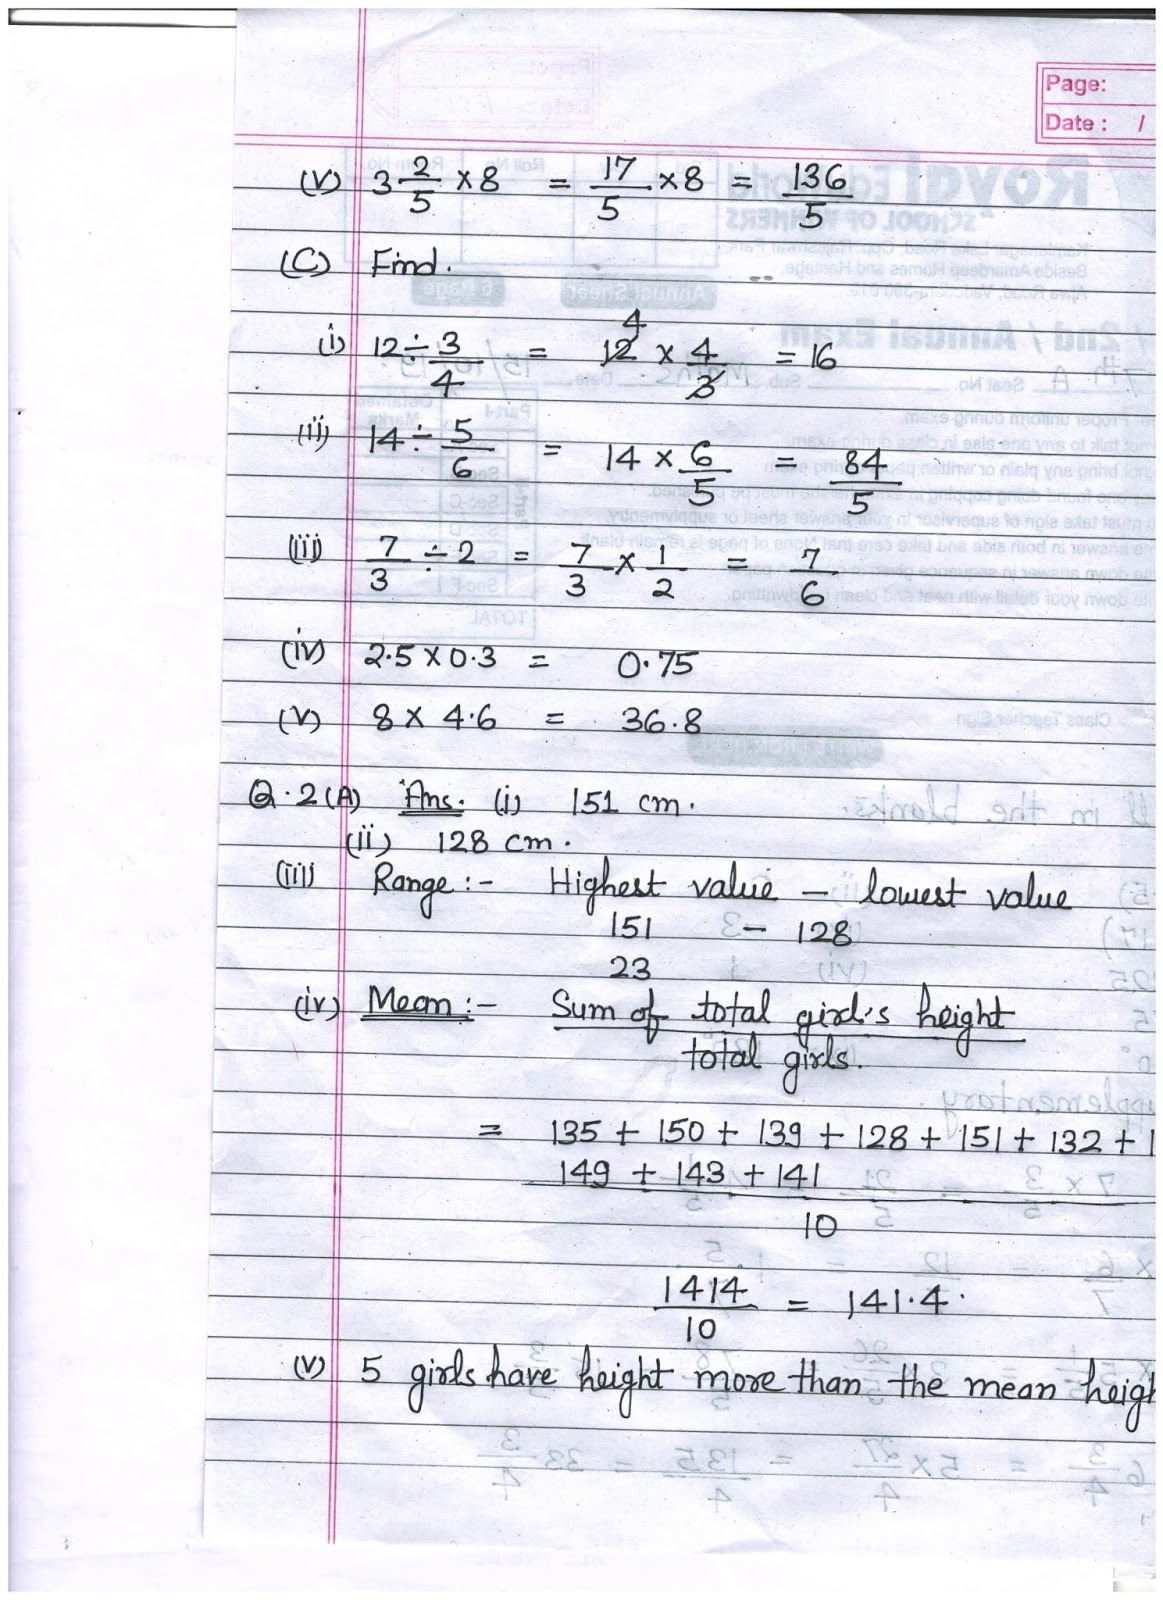 Page:
Date : /
(v) 3 2/5 × 8 = 17/5 × 8 = 136/5
(C) Find.
(i) 12 ÷ 3/4 = 12 4 × 4/3 = 16
(ii) 14 ÷ 5/6 = 14 × 6/5 = 84/5
(iii) 7/3 ÷ 2 = 7/3 × 1/2 = 7/6
(iv) 2.5 × 0.3 = 0.75
(v) 8 × 4.6 = 36.8
Q.2 (A) Ans. (i) 151 cm.
(ii) 128 cm.
(iii) Range :- Highest value - lowest value
151 - 128
23
(iv) Mean :- Sum of total girl's height
total girls.
= 135 + 150 + 139 + 128 + 151 + 132 + 1
149 + 143 + 141
10
1414/10 = 141.4
(v) 5 girls have height more than the mean heigh